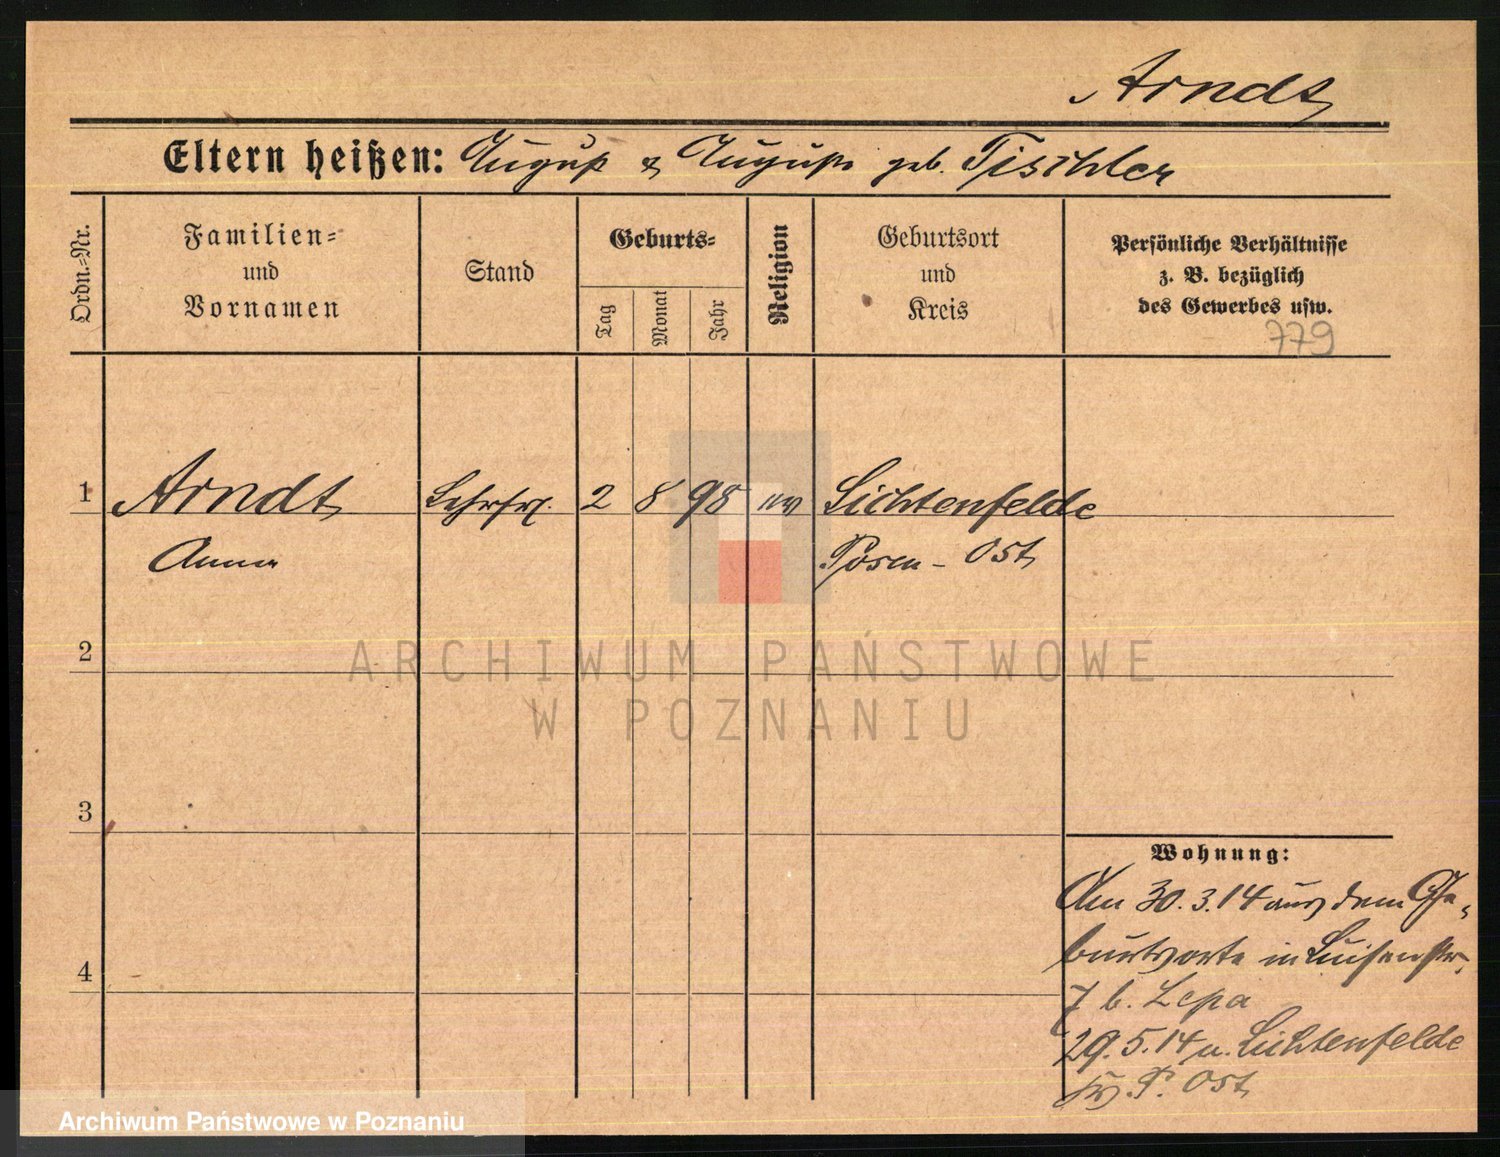 Arndt
Eltern heißen: August & Auguste geb. Tischler
Ordn.-Nr.
Familien-
und
Vornamen
Stand
Geburts-
Tag
Monat
Jahr
Religion
Geburtsort
und
Kreis
Persönliche Verhältnisse
z. B. bezüglich
des Gewerbes usw.
779
1 Arndt Lehrfrl. 2 8 98 ev Lichtenfelde
Anna Posen - Ost
2
ARCHIWUM PAŃSTWOWE
W POZNANIU
3
Wohnung:
Am 30.3.14 aus dem Ge-
burtsorte in Luisenstr.
4
7 b. Lepa
29.5.14 n. Lichtenfelde
Kr. P. Ost
Archiwum Państwowe w Poznaniu